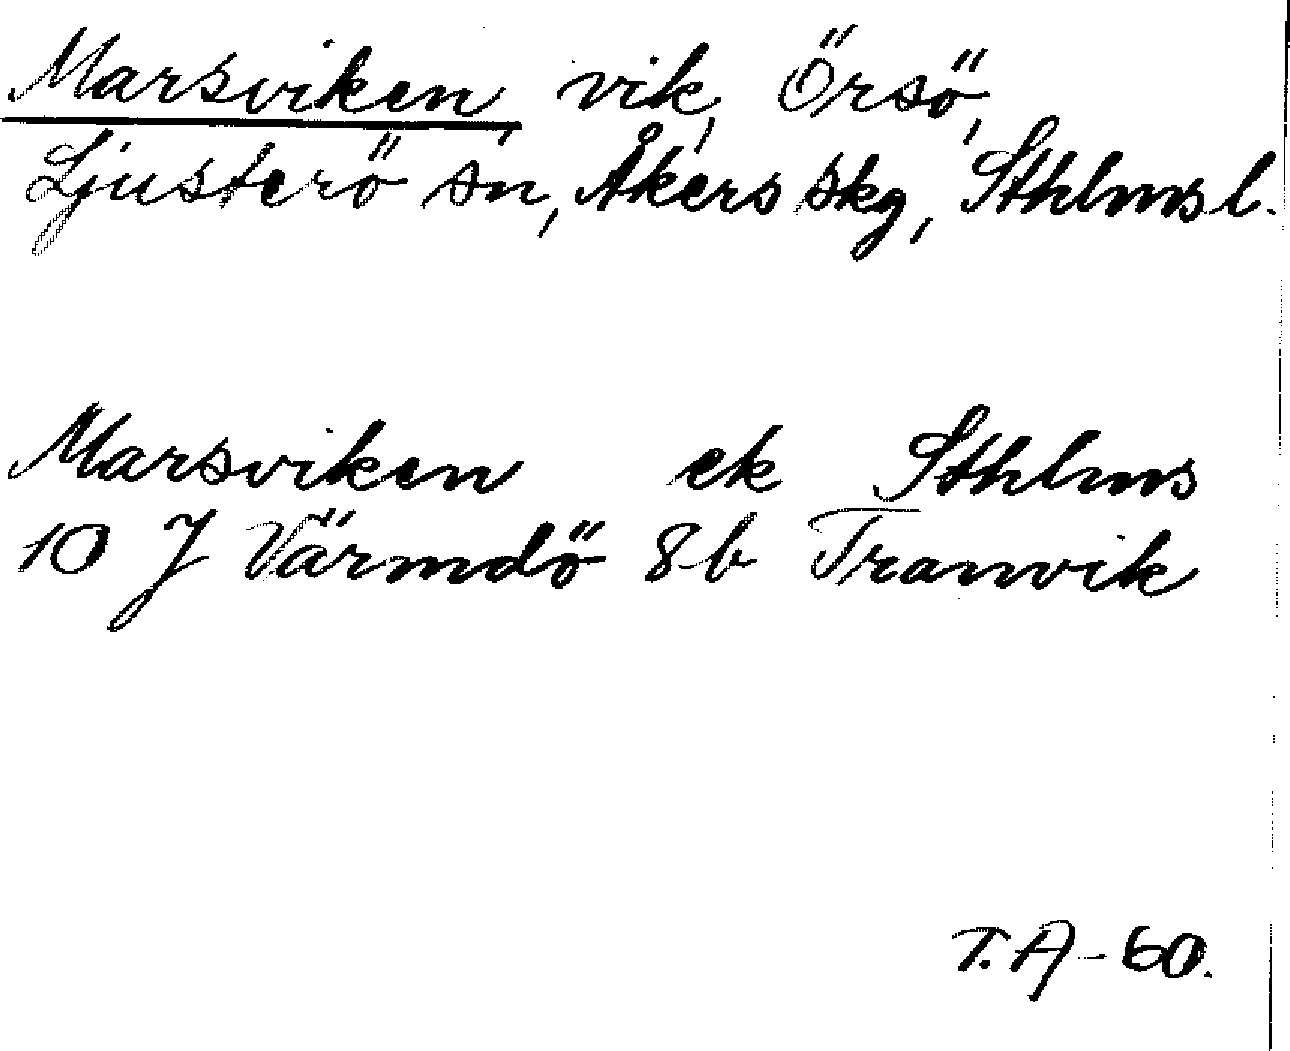 Marsviken, vik, Örsö,
Ljusterö sn, Åkers skg, Sthlmsl.
Marsviken ek Sthlms
10 J Värmdö 8b Tranvik
T.A-60.